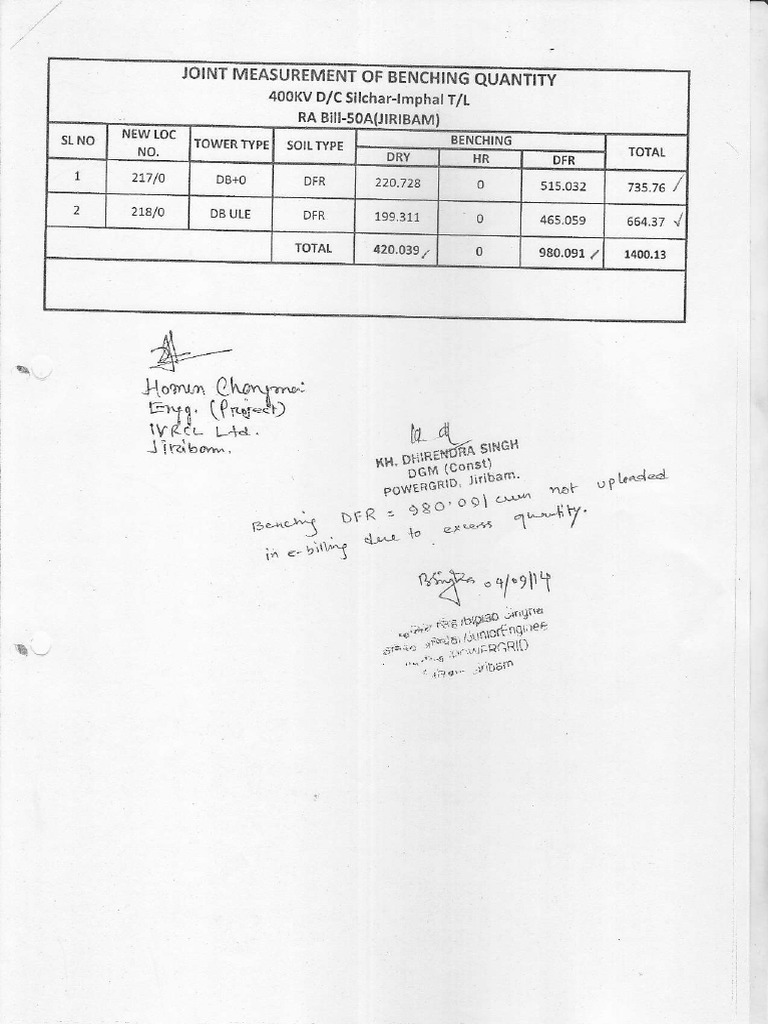 JOINT MEASUREMENT OF BENCHING QUANTITY
400KV D/C Silchar-Imphal T/L
RA Bill-50A(JIRIBAM)
SL NO NEW LOC NO. TOWER TYPE SOIL TYPE BENCHING TOTAL
DRY HR DFR
1 217/0 DB+0 DFR 220.728 0 515.032 735.76
2 218/0 DB ULE DFR 199.311 0 465.059 664.37
TOTAL 420.039 0 980.091 1400.13
Homen
Engg. (Project)
IVRCL Ltd.
Jiribam.
KH. DHIRENDRA SINGH
DGM (Const)
POWERGRID, Jiribam.
Benching DFR = 980.091 cum not uploaded
in e-billing due to excess quantity.
04/09/14
/JuniorEnginee
POWERGRID